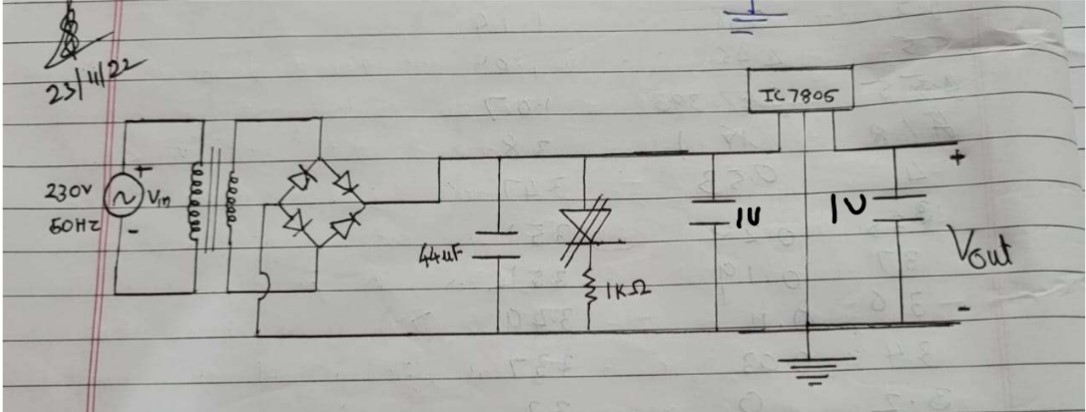 23/11/22
IC 7805
230V
50HZ
Vin
+
-
44uF
1KΩ
1U
1U
+
Vout
-